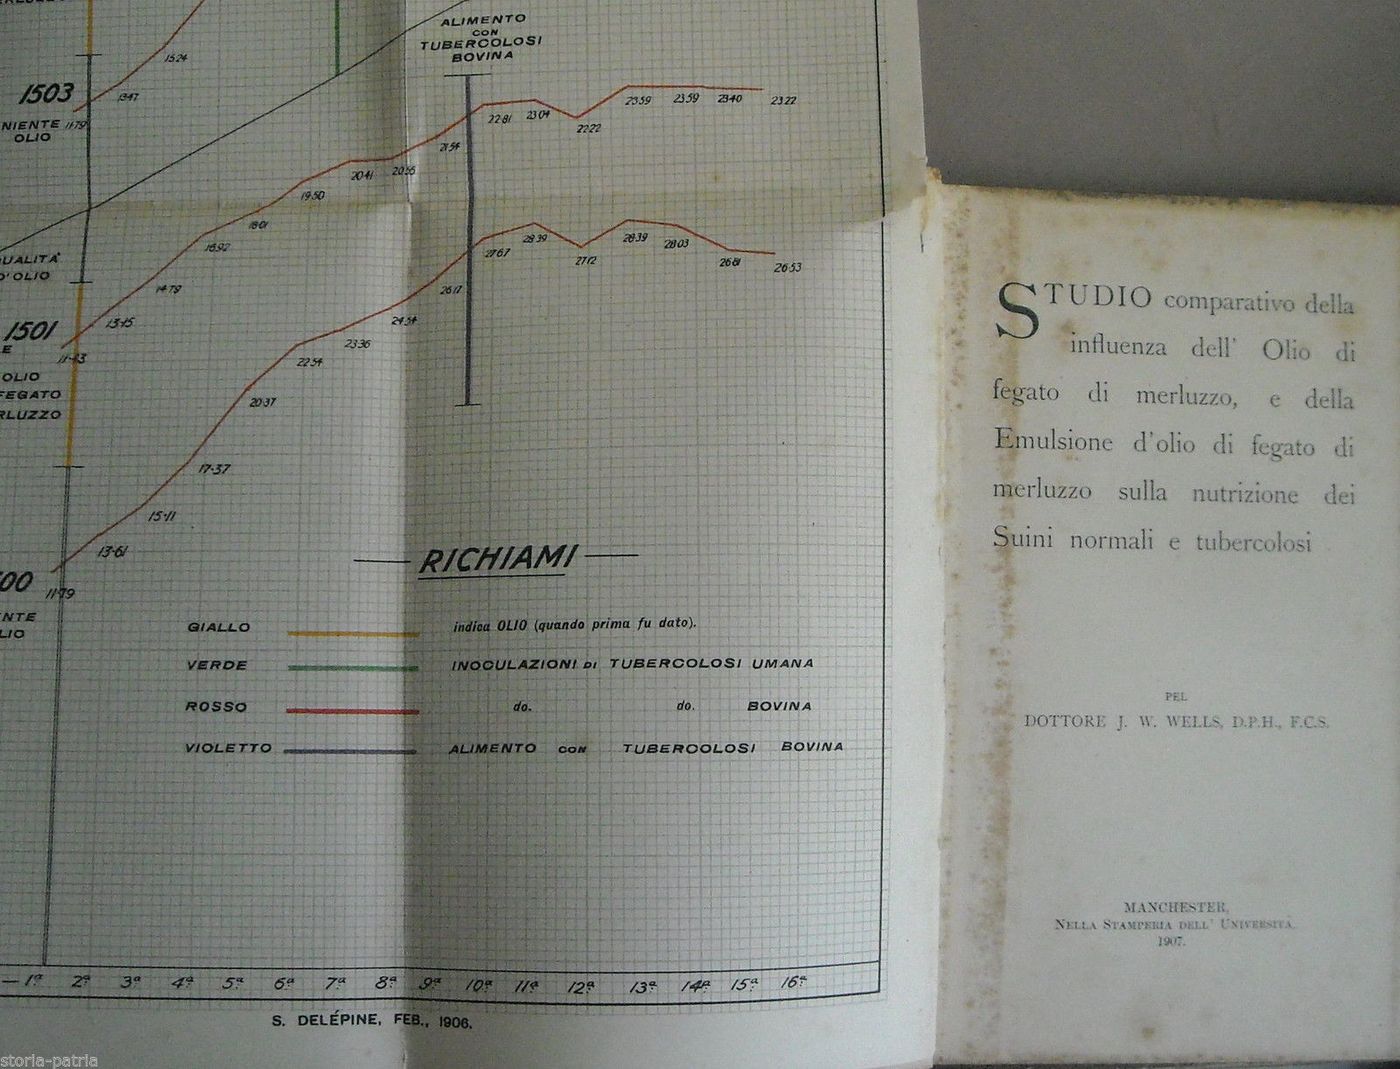 ALIMENTO
CON
TUBERCOLOSI
BOVINA
1503
NIENTE
OLIO
11·79
13·47
15·24
21·54
22·81
23·04
22·22
23·59
23·59
23·40
23·22
20·41
19·50
18·01
16·92
14·79
13·15
11·43
UALITA'
D'OLIO
1501
OLIO
FEGATO
RLUZZO
27·67
28·39
27·12
28·39
28·03
26·81
26·53
26·17
24·54
23·36
22·54
20·37
17·37
15·11
13·61
11·79
00
NTE
LIO
RICHIAMI
GIALLO indica OLIO (quando prima fu dato).
VERDE INOCULAZIONI DI TUBERCOLOSI UMANA
ROSSO do. do. BOVINA
VIOLETTO ALIMENTO CON TUBERCOLOSI BOVINA
1ª 2ª 3ª 4ª 5ª 6ª 7ª 8ª 9ª 10ª 11ª 12ª 13ª 14ª 15ª 16ª
S. DELÉPINE, FEB., 1906.
STUDIO comparativo della
influenza dell' Olio di
fegato di merluzzo, e della
Emulsione d'olio di fegato di
merluzzo sulla nutrizione dei
Suini normali e tubercolosi
PEL
DOTTORE J. W. WELLS, D.P.H., F.C.S.
MANCHESTER,
NELLA STAMPERIA DELL' UNIVERSITÀ.
1907.
storia-patria